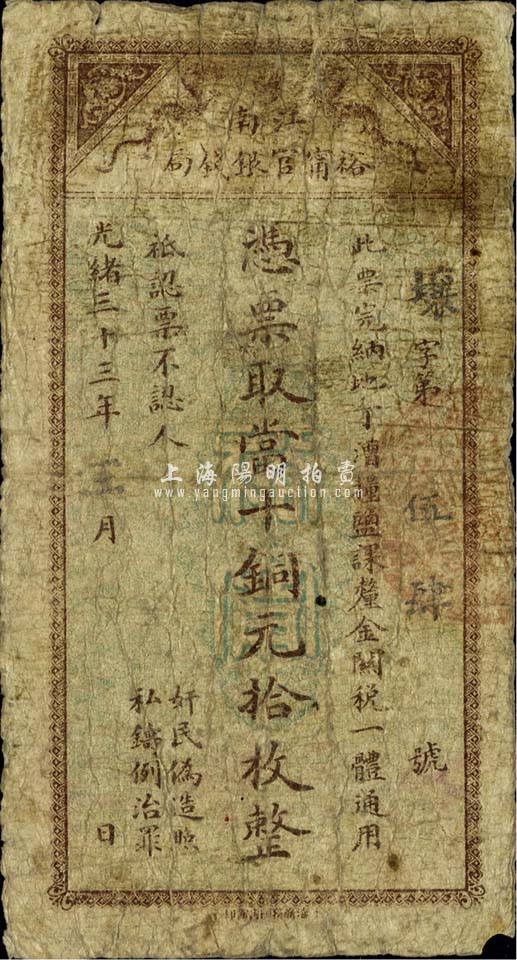 江南
裕甯官銀錢局
壤字第伍肆號
此票完納地丁漕糧鹽課釐金關稅一體通用
憑票取當十銅元拾枚整
祗認票不認人
奸民偽造照
私鑄例治罪
光緒三十三年 月 日
上海陽明拍賣
www.yangmingauction.com